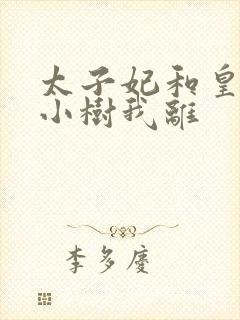 太子妃和皇
小樹我離
李多慶